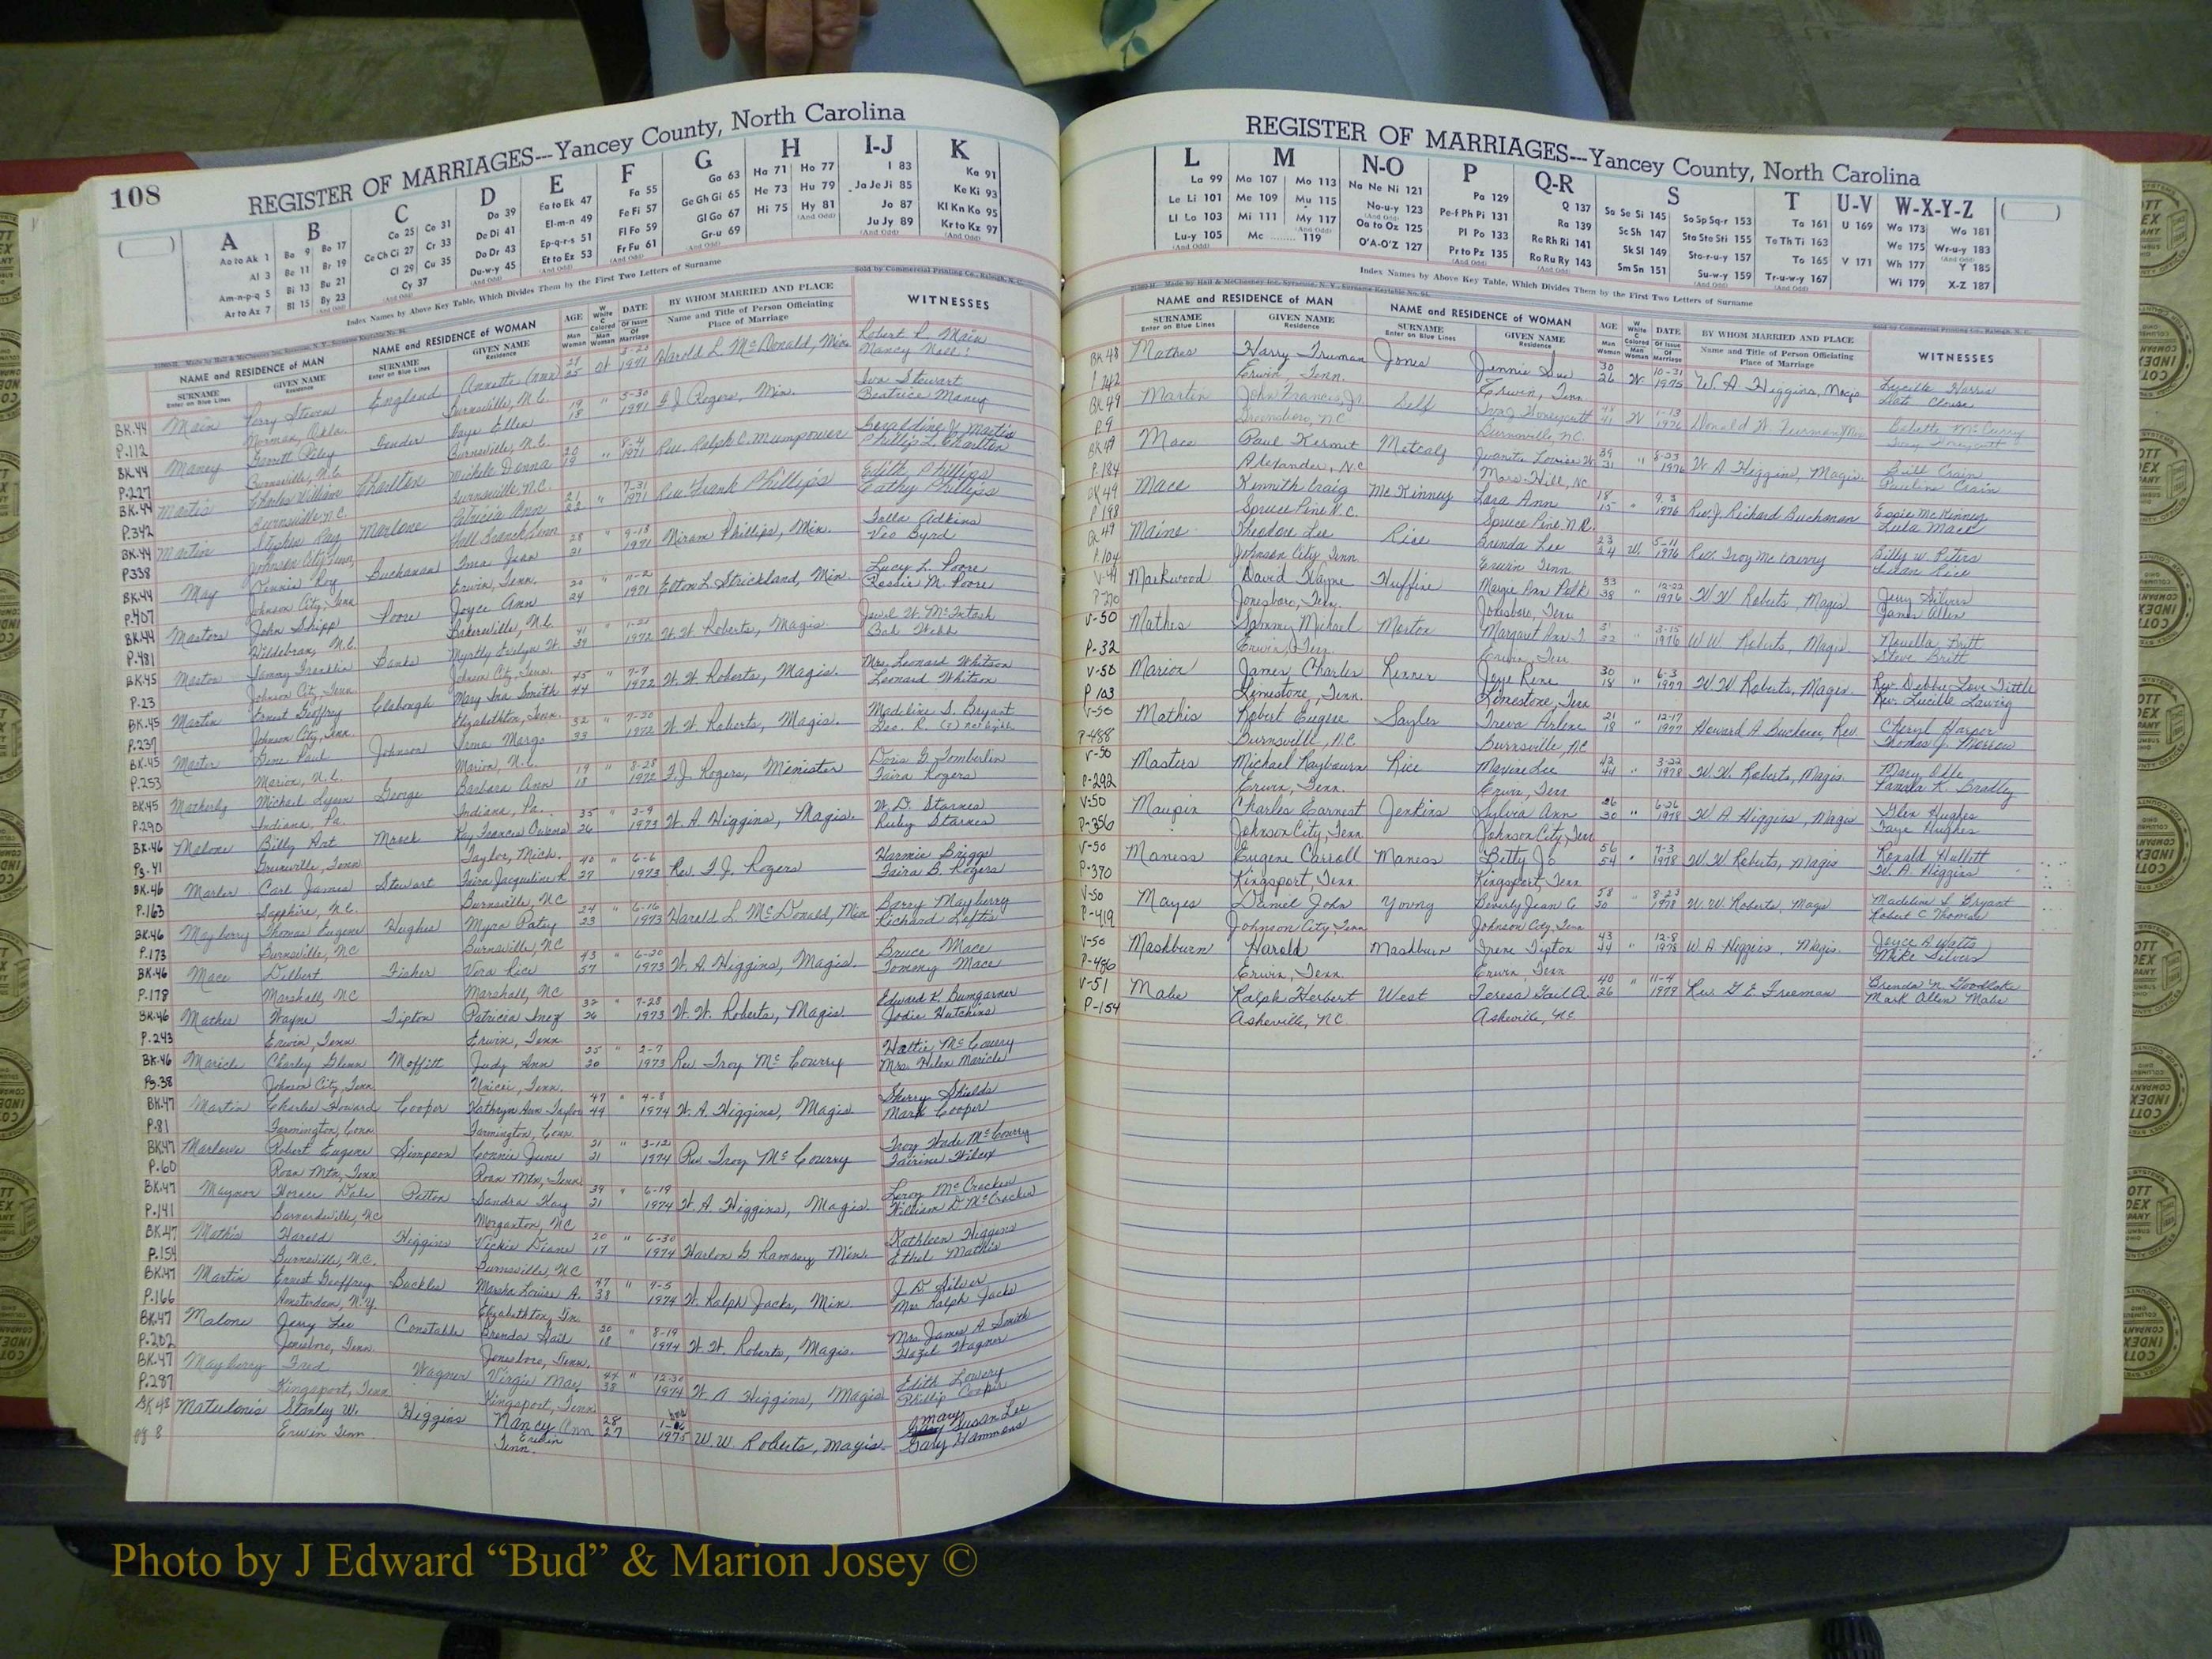 108
REGISTER OF MARRIAGES---Yancey County, North Carolina
A B C D E F G H I-J K
Aa to Ak 1
Al 3
Am-n-p-q 5
Ar to Az 7
Ba 9 Bo 17
Be 11 Br 19
Bi 13 Bu 21
Bl 15 By 23
Ca 25 Co 31
Ce Ch Ci 27 Cr 33
Cl 29 Cu 35
Cy 37
Da 39
De Di 41
Do Dr 43
Du-w-y 45
Ea to Ek 47
El-m-n 49
Ep-q-r-s 51
Et to Ez 53
Fa 55
Fe Fi 57
Fl Fo 59
Fr Fu 61
Ga 63
Ge Gh Gi 65
Gl Go 67
Gr-u 69
Ha 71 Ho 77
He 73 Hu 79
Hi 75 Hy 81
I 83
Ja Je Ji 85
Jo 87
Ju Jy 89
Ka 91
Ke Ki 93
Kl Kn Ko 95
Kr to Kz 97
Index Names by Above Key Table, Which Divides Them by the First Two Letters of Surname
Sold by Commercial Printing Co., Raleigh, N. C.
NAME and RESIDENCE of MAN NAME and RESIDENCE of WOMAN AGE DATE BY WHOM MARRIED AND PLACE WITNESSES
SURNAME GIVEN NAME SURNAME GIVEN NAME Name and Title of Person Officiating
Enter on Blue Lines Residence Enter on Blue Lines Residence Place of Marriage
BK.44 Main Perry Steven England Annette 1971 Harold L. McDonald, Min. Robert L. Main
P.112 Norman, Okla. Burnsville, N.C. Nancy
BK.44 Maney Garrett Riley Gouder Faye Ellen 19 " 5-30 1971 F. J. Rogers, Min. Stewart
P.227 Burnsville, N.C. Burnsville, N.C. 18 Beatrice Maney
BK.44 Martin Charles William Charlton Michele Donna 20 " 8-4 1971 Rev. Ralph C. Mumpower Geraldine Martin
P.342 Burnsville N.C. Burnsville, N.C. 19 Phillip L. Charlton
BK.44 Martin Stephen Ray Marlone Patricia Ann 21 " 7-31 1971 Rev. Frank Phillips Edith Phillips
P.338 Johnson City, Tenn. Cathy Phillips
BK.44 May Dennis Roy Buchanan Jean 28 " 9-18 1971 Hiram Phillips, Min. Adkins
P.407 Johnson City, Tenn. Erwin, Tenn. 21 Byrd
BK.44 Masters John Skipp Poore Joyce Ann 20 " 11-2 1971 Elton L. Strickland, Min. Lucy L. Poore
P.481 Hildebran, N.C. Bakersville, N.C. 24 M. Poore
BK.45 Sammy Franklin Banks Myrtly Evelyn W. 41 " 1972 W. W. Roberts, Magis. Jewel W. McIntosh
P.23 Johnson City, Tenn. Johnson City, Tenn. 39 Bob Webb
BK.45 Martin Ernest Geoffry Clabough Mary Ina Smith 45 " 7-7 1972 W. W. Roberts, Magis. Mrs. Leonard Whitson
P.237 Johnson City, Tenn. Elizabethton, Tenn. 44 Leonard Whitson
BK.45 Master Gene Paul Johnson Margo 32 " 7-20 1972 W. W. Roberts, Magis. Madeline S. Bryant
P.253 Marion, N.C. Marion, N.C. 33
BK.45 Matherly Michael George Barbara Ann 19 " 8-28 1972 F. J. Rogers, Minister Doris G. Tomberlin
P.290 Indiana, Pa. Indiana, Pa. 18 Faira Rogers
BK.46 Malone Billy Art Mock Kay Frances Owens 35 " 2-9 1973 W. A. Higgins, Magis. W. D. Starnes
Pg.41 Greenville, Tenn. Taylor, Mich. 26 Ruby Starnes
BK.46 Marler Carl James Stewart Faira Jacqueline R. 40 " 6-6 1973 Rev. F. J. Rogers Harmie Briggs
P.163 Sapphire, N.C. Burnsville, NC 27 Faira B. Rogers
BK.46 Mayberry Thomas Eugene Hughes Myra Patsy 24 " 6-16 1973 Harold L. McDonald, Min Barry Mayberry
P.173 Burnsville, NC Burnsville, NC 23 Richard Loftis
BK.46 Mace Delbert Fisher Vera Rice 43 " 6-20 1973 W. A. Higgins, Magis. Bruce Mace
P.178 Marshall, NC Marshall, NC 57 Tommy Mace
BK.46 Mathes Wayne Tipton Patricia Inez 32 " 7-28 1973 W. W. Roberts, Magis. Edward K. Bumgarner
P.243 Erwin, Tenn. Erwin, Tenn 26 Jodie Hutchins
BK.46 Maricle Charley Glenn Moffitt Judy Ann 25 " 2-7 1973 Rev. Troy McCourry Hattie McCourry
Pg.38 Johnson City, Tenn. Unicoi, Tenn. 20 Mrs. Helen Maricle
BK.47 Martin Charles Howard Cooper Kathryn Ann Taylor 47 " 4-8 1974 W. A. Higgins, Magis Sherry Shields
P.81 Farmington, Conn. Farmington, Conn. 44 Mark Cooper
BK.47 Marlowe Robert Eugene Simpson Connie June 21 " 3-12 1974 Rev Troy McCourry Troy Wade McCourry
P.60 Roan Mtn, Tenn Roan Mtn, Tenn 21 Fairine Wilcox
BK.47 Maynor Horace Dale Patton Sandra Kay 39 " 6-19 1974 W. A. Higgins, Magis. Leroy McCracken
P.141 Barnardsville, NC Morganton, NC 21 William D. McCracken
BK.47 Mathis Harold Higgins Vickie Diane 20 " 6-30 1974 Harlon G. Ramsey, Min. Kathleen Higgins
P.154 Burnsville, N.C. Burnsville, NC 17 Ethel Mathis
BK.47 Martin Ernest Geoffrey Buckles Marsha Louise A. 47 " 7-5 1974 W. Ralph Jacks, Min J. D. Silver
P.166 Amsterdam, N.Y. Elizabethton, Tn. 38 Mrs. Ralph Jacks
BK.47 Malone Jerry Lee Constable Brenda Gail 20 " 8-19 1974 W. W. Roberts, Magis. Mrs. James A. Smith
P.202 Jonesboro, Tenn. Jonesboro, Tenn. 18 Hazel Wagner
BK.47 Mayberry Fred Wagner Virgie Mae 44 " 12-30 1974 W. A Higgins, Magis Edith Lowery
P.287 Kingsport, Tenn Kingsport, Tenn 38 Phillip Cooper
BK 48 Matudonis Stanley W. Higgins Nancy Ann 28 1975 W. W. Roberts, Magis. Mary Susan Lee
pg 8 Erwin Tenn. Erwin Tenn. 27 Gary Hammons
REGISTER OF MARRIAGES---Yancey County, North Carolina
L M N-O P Q-R S T U-V W-X-Y-Z
La 99
Le Li 101
Ll Lo 103
Lu-y 105
Ma 107 Mo 113
Me 109 Mu 115
Mi 111 My 117
Mc 119
Na Ne Ni 121
No-u-y 123
Oa to Oz 125
O'A-O'Z 127
Pa 129
Pe-f Ph Pi 131
Pl Po 133
Pr to Pz 135
Q 137
Ra 139
Re Rh Ri 141
Ro Ru Ry 143
Sa Se Si 145 So Sp Sq-r 153
Sc Sh 147 Sta Ste Sti 155
Sk Sl 149 Sto-r-u-y 157
Sm Sn 151 Su-w-y 159
Ta 161
Te Th Ti 163
To 165
Tr-u-w-y 167
U 169
V 171
Wa 173 Wo 181
We 175 Wr-u-y 183
Wh 177 Y 185
Wi 179 X-Z 187
Index Names by Above Key Table, Which Divides Them by the First Two Letters of Surname
Made by Hall & McChesney Inc. Syracuse, N. Y.
Sold by Commercial Printing Co., Raleigh, N. C.
NAME and RESIDENCE of MAN NAME and RESIDENCE of WOMAN AGE DATE BY WHOM MARRIED AND PLACE WITNESSES
SURNAME GIVEN NAME SURNAME GIVEN NAME Name and Title of Person Officiating
Enter on Blue Lines Residence Enter on Blue Lines Residence Place of Marriage
BK 48 Mathes Harry Truman Jones Jennie Sue 30 10-31 1975 W. A. Higgins, Magis Lucille Harris
P 242 Erwin, Tenn. Erwin, Tenn 26 W. Clouse
BK 49 Martin John Francis, Jr. Self Honeycutt W 1-13 1976 Donald W. Furman, Min Babette McCurry
P.9 Greensboro, N.C. Burnsville, N.C. 41
BK 49 Mace Paul Kermit Metcalf Juanita Louise W. 39 " 8-23 1976 W A Higgins, Magis. Bill Crain
P.184 Alexander, N.C Mars Hill, NC 31 Pauline Crain
BK 49 Mace Kennith Craig McKinney Lara Ann 18 " 9-3 1976 Rev. J. Richard Buchanan Essie McKinney
P 198 Spruce Pine N.C. Spruce Pine N.C. 15 Lula Mace
BK 49 Maine Theodore Lee Rice Brenda Lee 23 W. 5-11 1976 Rev. Troy McCourry Billy W. Peters
P.104 Johnson City, Tenn. Erwin Tenn. 24 Susan Rice
V-49 Markwood David Wayne Huffine Margie Ann Polk 33 " 12-22 1976 W W Roberts, Magis. Jerry Silvers
P270 Jonesboro, Tenn. Jonesboro, Tenn 38 James Allen
V-50 Mathes Sammy Michael Morton Margaret Ann T. " 3-15 1976 W W. Roberts, Magis. Novella Britt
P-32 Erwin, Tenn. Erwin, Tenn 32 Steve Britt
V-50 Marion James Charles Renner Joye Rene 30 " 6-3 1977 W W Roberts, Magis. Rev. Debbie Love Tittle
P 103 Limestone, Tenn. Limestone, Tenn 18 Rev. Lucille Lawing
V-50 Mathis Robert Eugene Sayles Treva Arlene 21 " 12-17 1977 Howard A Buchanan, Rev. Cheryl Harper
P-488 Burnsville, N.C. Burnsville, NC 18 Thomas J. Morrow
V-50 Masters Michael Raybourn Rice Maxine Lee 42 " 3-22 1978 W. W. Roberts, Magis. Mary
P-292 Erwin, Tenn. Erwin, Tenn 44 Pamela K. Bradley
V-50 Maupin Charles Earnest Jenkins Sylvia Ann 36 " 6-26 1978 W A Higgins, Magis Glen Hughes
P-356 Johnson City, Tenn Johnson City, Tenn 30 Faye Hughes
V-50 Maness Eugene Carroll Maness Betty Jo 56 " 7-3 1978 W. W Roberts, Magis Ronald Hullett
P-370 Kingsport, Tenn. Kingsport, Tenn 54 W. A. Higgins
V-50 Mayes Daniel John Young Beverly Jean C 58 " 8-23 1978 W. W. Roberts, Magis Madeline S. Bryant
P-419 Johnson City, Tenn Johnson City, Tenn 50 Robert C Thomas
V-50 Mashburn Harold Mashburn Irene Tipton 43 " 12-8 1978 W. A. Higgins, Magis. Joyce A. Watts
P-486 Erwin, Tenn. Erwin, Tenn 44 Mike Silvers
V-51 Mabe Ralph Herbert West Teresa Gail A. 40 " 11-4 1979 Rev. G E. Freeman Brenda N. Goodlake
P-154 Asheville, NC. Asheville, NC 26 Mark Allen Mabe
Photo by J Edward “Bud” & Marion Josey ©